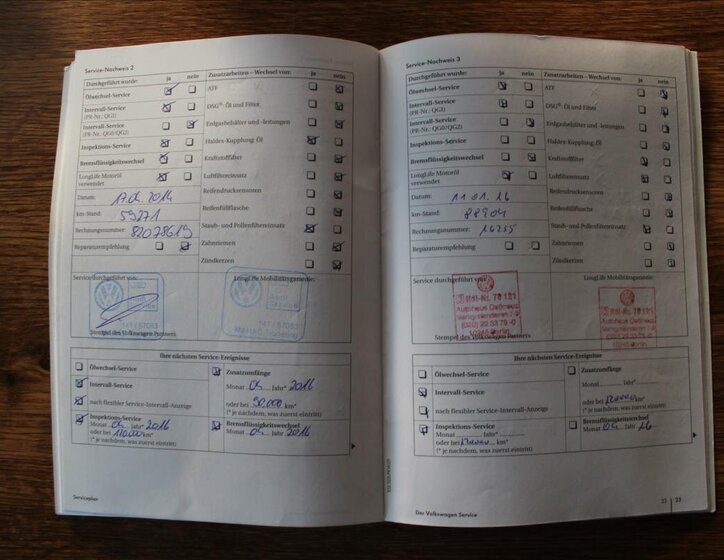 Service-Nachweis 2
Durchgeführt wurde: ja nein
Ölwechsel-Service
Intervall-Service
(PR-Nr.: QG1)
Intervall-Service
(PR-Nr.: QG0/QG2)
Inspektions-Service
Bremsflüssigkeitswechsel
LongLife Motoröl
verwendet
Datum:
km-Stand: 59271
Rechnungsnummer: 82078619
Reparaturempfehlung
Zusatzarbeiten – Wechsel von: ja nein
ATF
DSG®-Öl und Filter
Erdgasbehälter und -leitungen
Haldex-Kupplung-Öl
Kraftstofffilter
Luftfiltereinsatz
Reifendrucksensoren
Reifenfüllflasche
Staub- und Pollenfiltereinsatz
Zahnriemen
Zündkerzen
Service durchgeführt von:
LongLife Mobilitätsgarantie:
Stempel des Volkswagen Partners
Ihre nächsten Service-Ereignisse
Ölwechsel-Service
Intervall-Service
nach flexibler Service-Intervall-Anzeige
Inspektions-Service
Monat Jahr* 2016
oder bei km*
(* je nachdem, was zuerst eintritt)
Zusatzumfänge
Monat Jahr* 2016
oder bei 90.000 km*
(* je nachdem, was zuerst eintritt)
Bremsflüssigkeitswechsel
Monat Jahr 2016
Serviceplan
Service-Nachweis 3
Durchgeführt wurde: ja nein
Ölwechsel-Service
Intervall-Service
(PR-Nr.: QG1)
Intervall-Service
(PR-Nr.: QG0/QG2)
Inspektions-Service
Bremsflüssigkeitswechsel
LongLife Motoröl
verwendet
Datum: 11.01.16
km-Stand: 88904
Rechnungsnummer: 16255
Reparaturempfehlung
Zusatzarbeiten – Wechsel von: ja nein
ATF
DSG®-Öl und Filter
Erdgasbehälter und -leitungen
Haldex-Kupplung-Öl
Kraftstofffilter
Luftfiltereinsatz
Reifendrucksensoren
Reifenfüllflasche
Staub- und Pollenfiltereinsatz
Zahnriemen
Zündkerzen
Service durchgeführt von:
LongLife Mobilitätsgarantie:
Stempel des Volkswagen Partners
Ihre nächsten Service-Ereignisse
Ölwechsel-Service
Intervall-Service
nach flexibler Service-Intervall-Anzeige
Inspektions-Service
Monat Jahr*
oder bei km*
(* je nachdem, was zuerst eintritt)
Zusatzumfänge
Monat Jahr*
oder bei km*
(* je nachdem, was zuerst eintritt)
Bremsflüssigkeitswechsel
Monat Jahr 16
Der Volkswagen Service